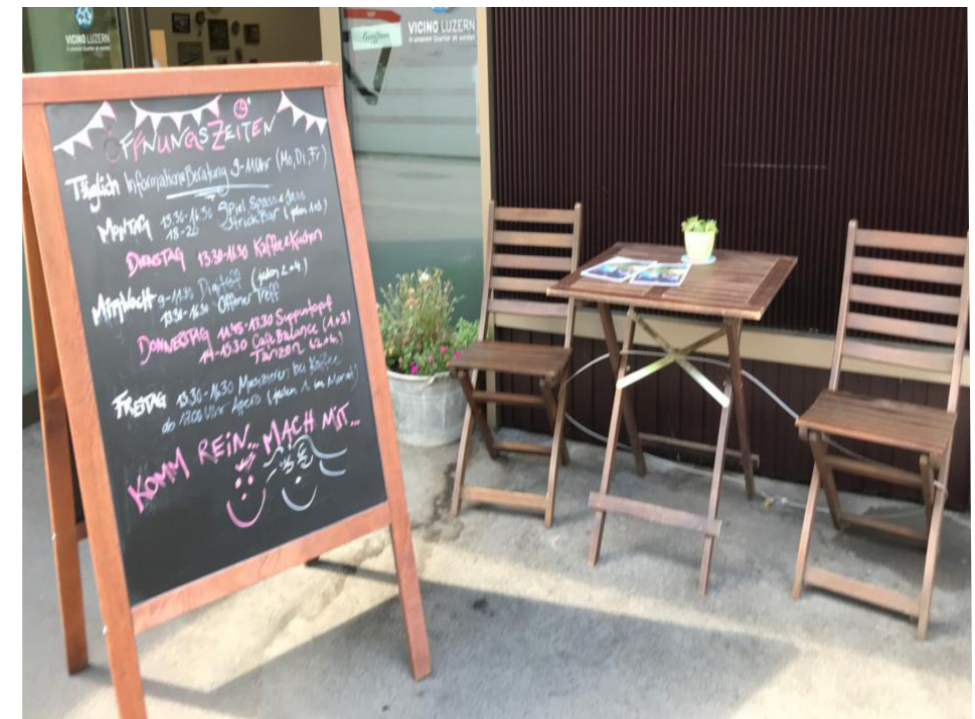 VICINO LUZERN
VICINO LUZERN
in unserem Quartier alt werden
ÖFFNUNGSZEITEN
Täglich Information & Beratung 9-11 Uhr (Mo, Di, Fr)
MONTAG 13.30-16.30 Spiel Spass & Jass
18-20 Strick Bar (jeden 1+3)
DIENSTAG 13.30-16.30 Kaffee & Kuchen
MITTWOCH 9-11.30 (jeden 2.+4.)
13.30-16.30 Offener Treff
DONNERSTAG 11.45-13.30 Suppentopf
14-15.30 Café Balance (1.+3.)
Tanzen (2.+4.)
FREITAG 13.30-16.30 bei Kaffee
ab 17.00 Uhr Apero (jeden 1. im Monat)
KOMM REIN... MACH MIT...